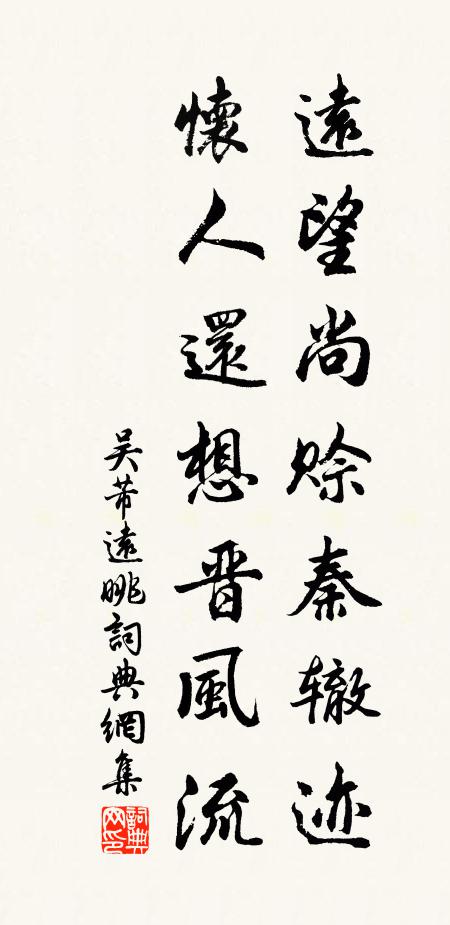 遠望尚賒秦辙迹
懷人還想晋風流
吴芾遠眺詞典網集
詞典网印